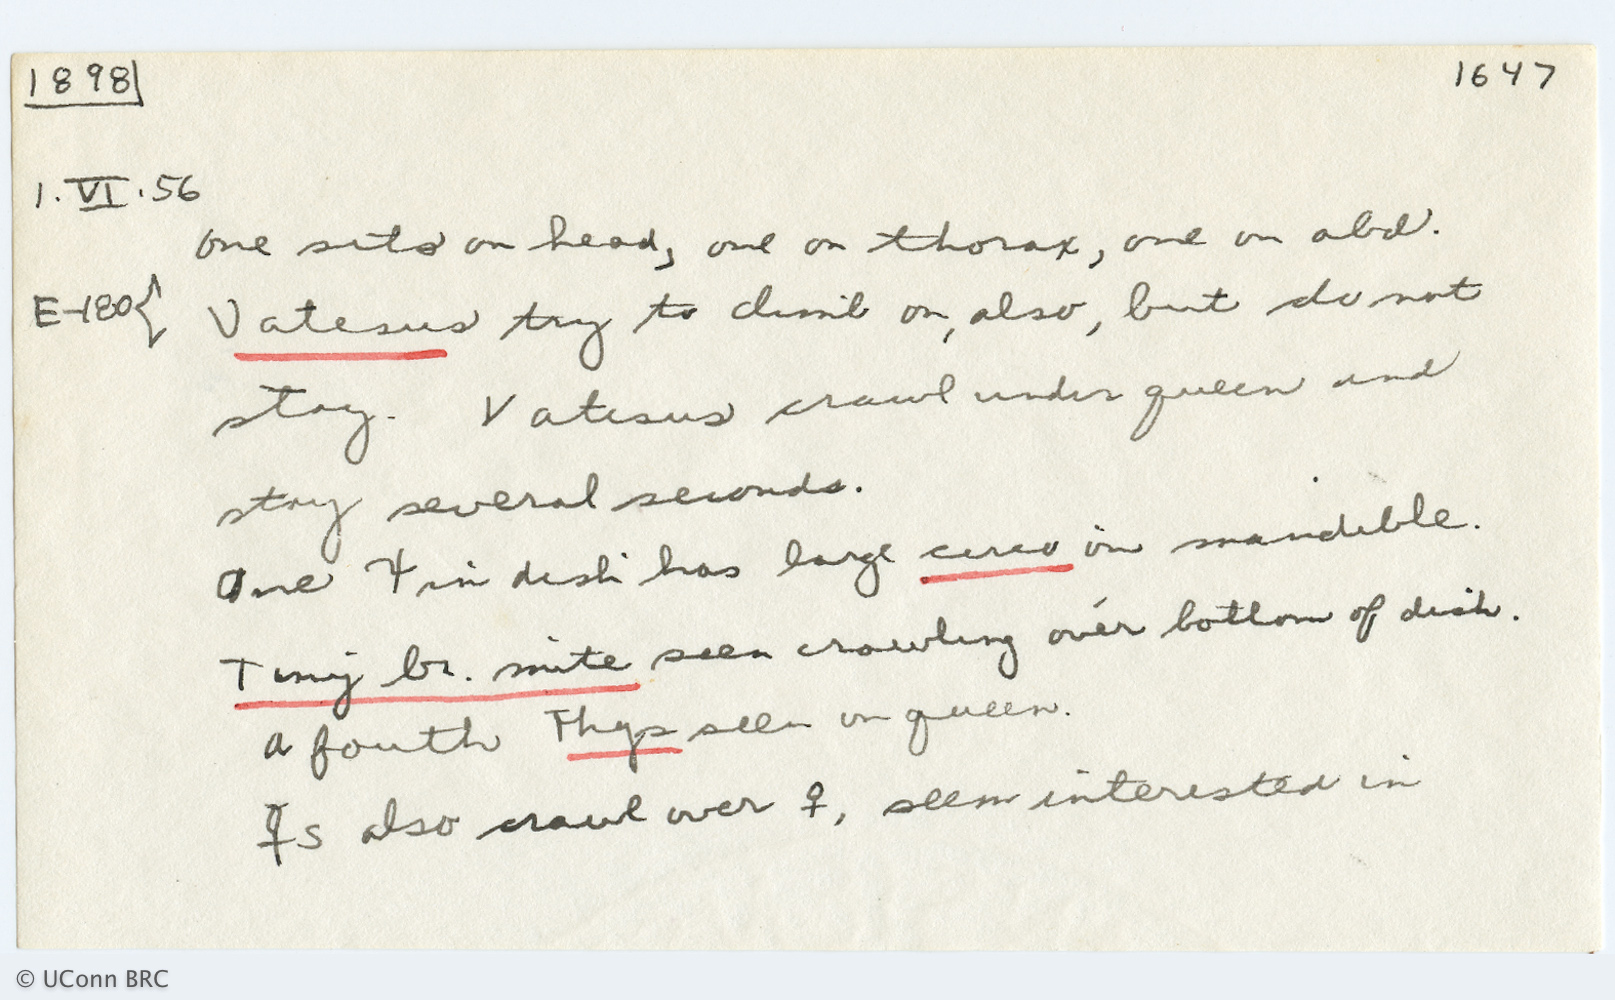 1898 1647
1.VI.56
One sits on head, one on thorax, one on abd.
E-180{ Vatesus try to climb on, also, but do not
stay. Vatesus crawl under queen and
stay several seconds.
One ♃ in dish has large circo on mandible.
Tiny br. mite seen crawling over bottom of dish.
A fourth Thys seen on queen.
☿s also crawl over ♀, seem interested in
© UConn BRC